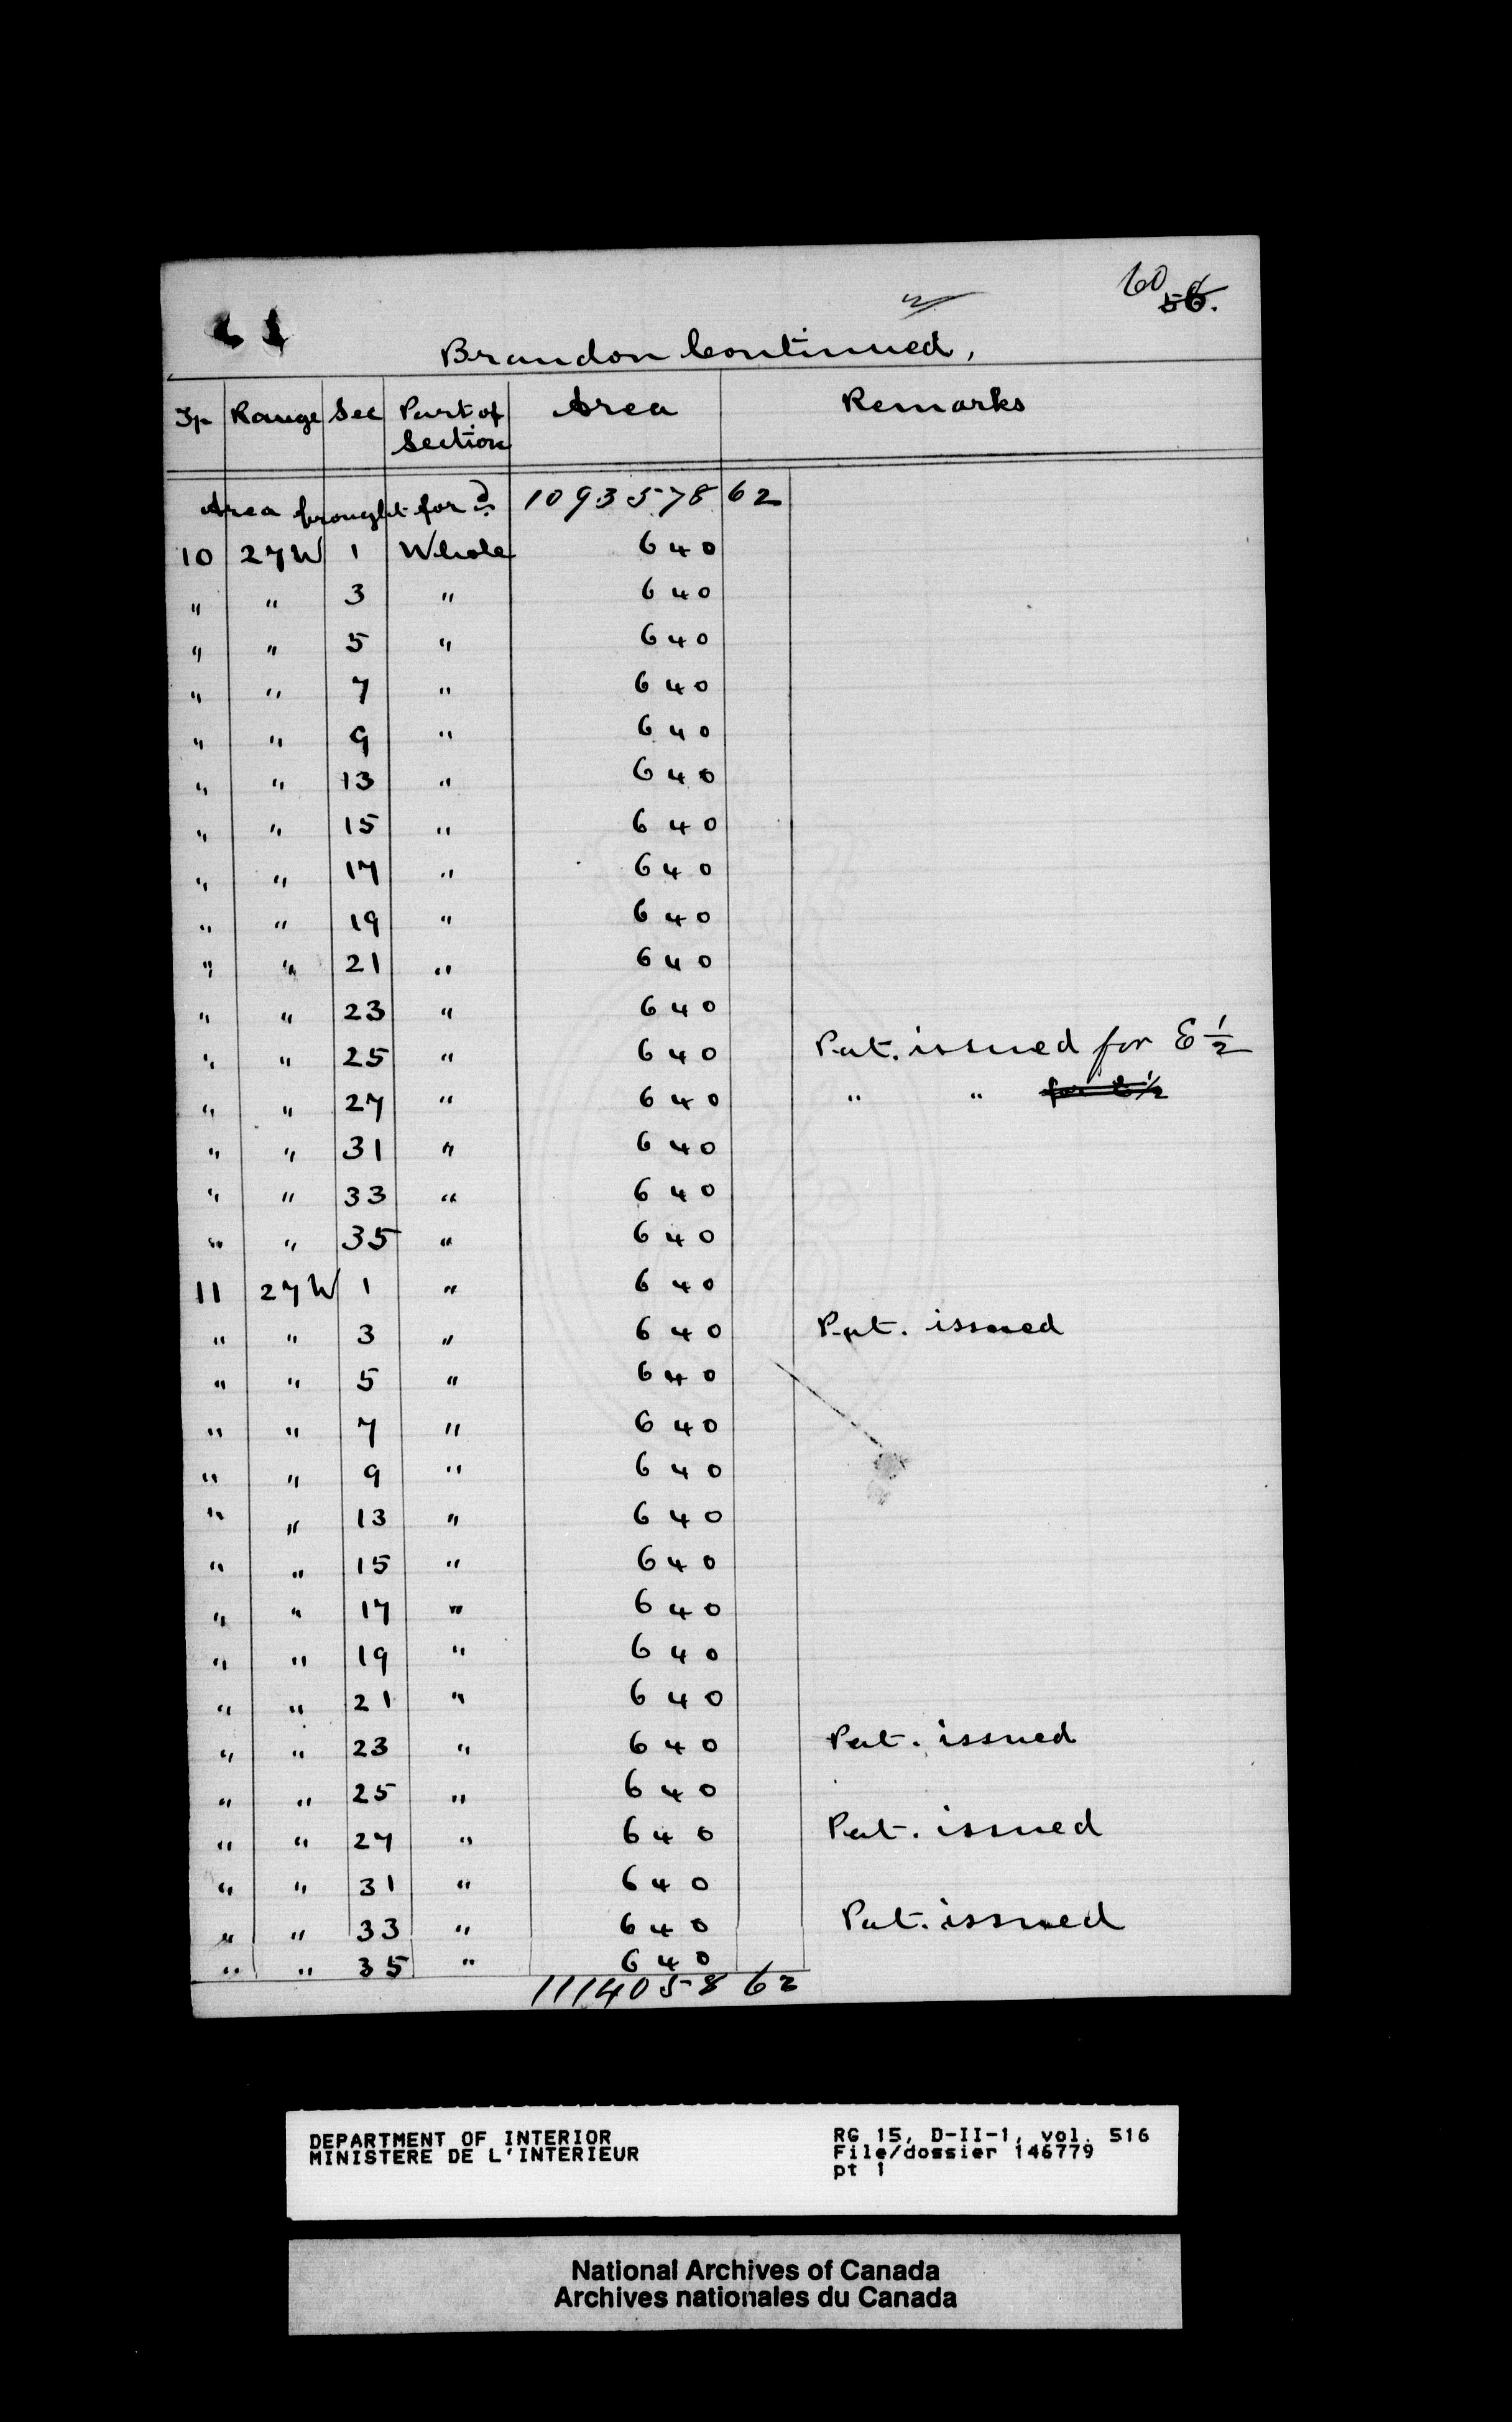 60
56.
Brandon Continued,
Tp Range Sec Part of Section Area Remarks
Area brought for'd 1093578 62
10 27W 1 Whole 640
" " 3 " 640
" " 5 " 640
" " 7 " 640
" " 9 " 640
" " 13 " 640
" " 15 " 640
" " 17 " 640
" " 19 " 640
" " 21 " 640
" " 23 " 640
" " 25 " 640 Pat. issued for E ½
" " 27 " 640 " " for E ½
" " 31 " 640
" " 33 " 640
" " 35 " 640
11 27W 1 " 640
" " 3 " 640 Pat. issued
" " 5 " 640
" " 7 " 640
" " 9 " 640
" " 13 " 640
" " 15 " 640
" " 17 " 640
" " 19 " 640
" " 21 " 640
" " 23 " 640 Pat. issued
" " 25 " 640
" " 27 " 640 Pat. issued
" " 31 " 640
" " 33 " 640 Pat. issued
" " 35 " 640
1114058 62
DEPARTMENT OF INTERIOR
MINISTERE DE L'INTERIEUR
RG 15, D-II-1, vol. 516
File/dossier 146779
pt 1
National Archives of Canada
Archives nationales du Canada